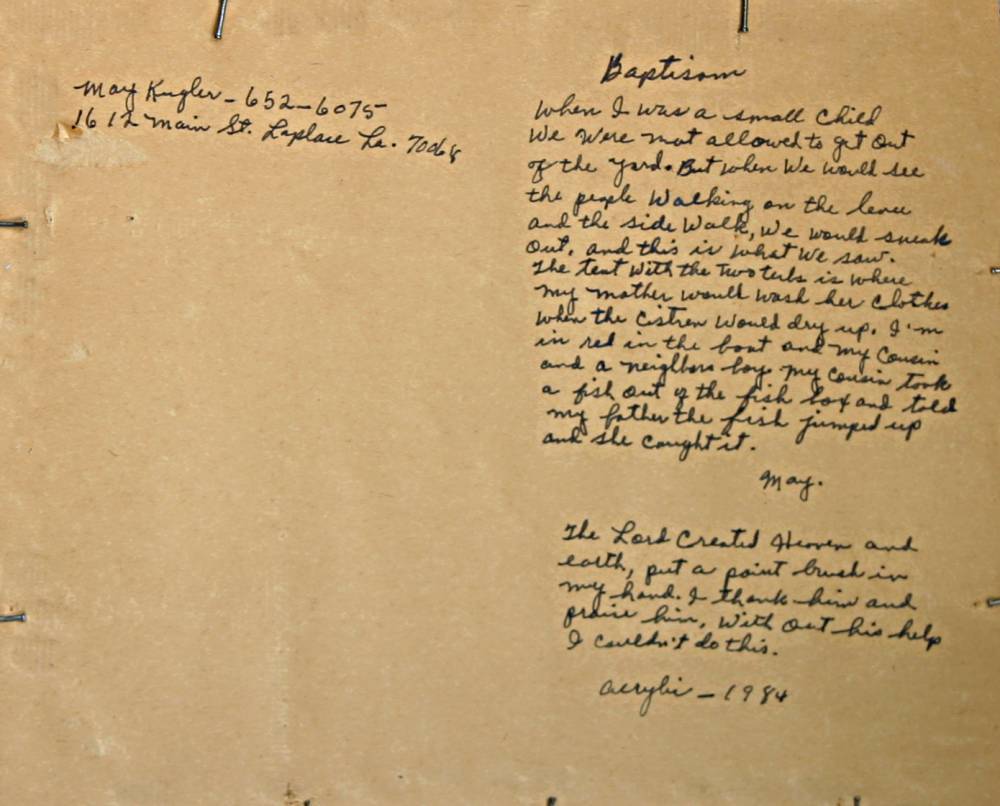 May Kugler - 652-6075
1612 Main St. Laplace La. 70068
Baptisom
When I was a small Child
We Were not allowed to get Out
of the yard. But when We would see
the people Walking on the levee
and the side Walk, We would sneak
Out, and this is what We saw.
The tent With the Two tubs is where
My mother would wash her Clothes
When the Cistren Would dry up. I'm
in red in the boat and my Cousin
and a neighbors boy. My Cousin took
a fish out of the fish box and told
my father the fish jumped up
and she caught it.
May.
The Lord Created Heaven and
earth, put a paint brush in
my hand. I thank him and
praise him, With Out his help
I couldn't do this.
Acrylic - 1984